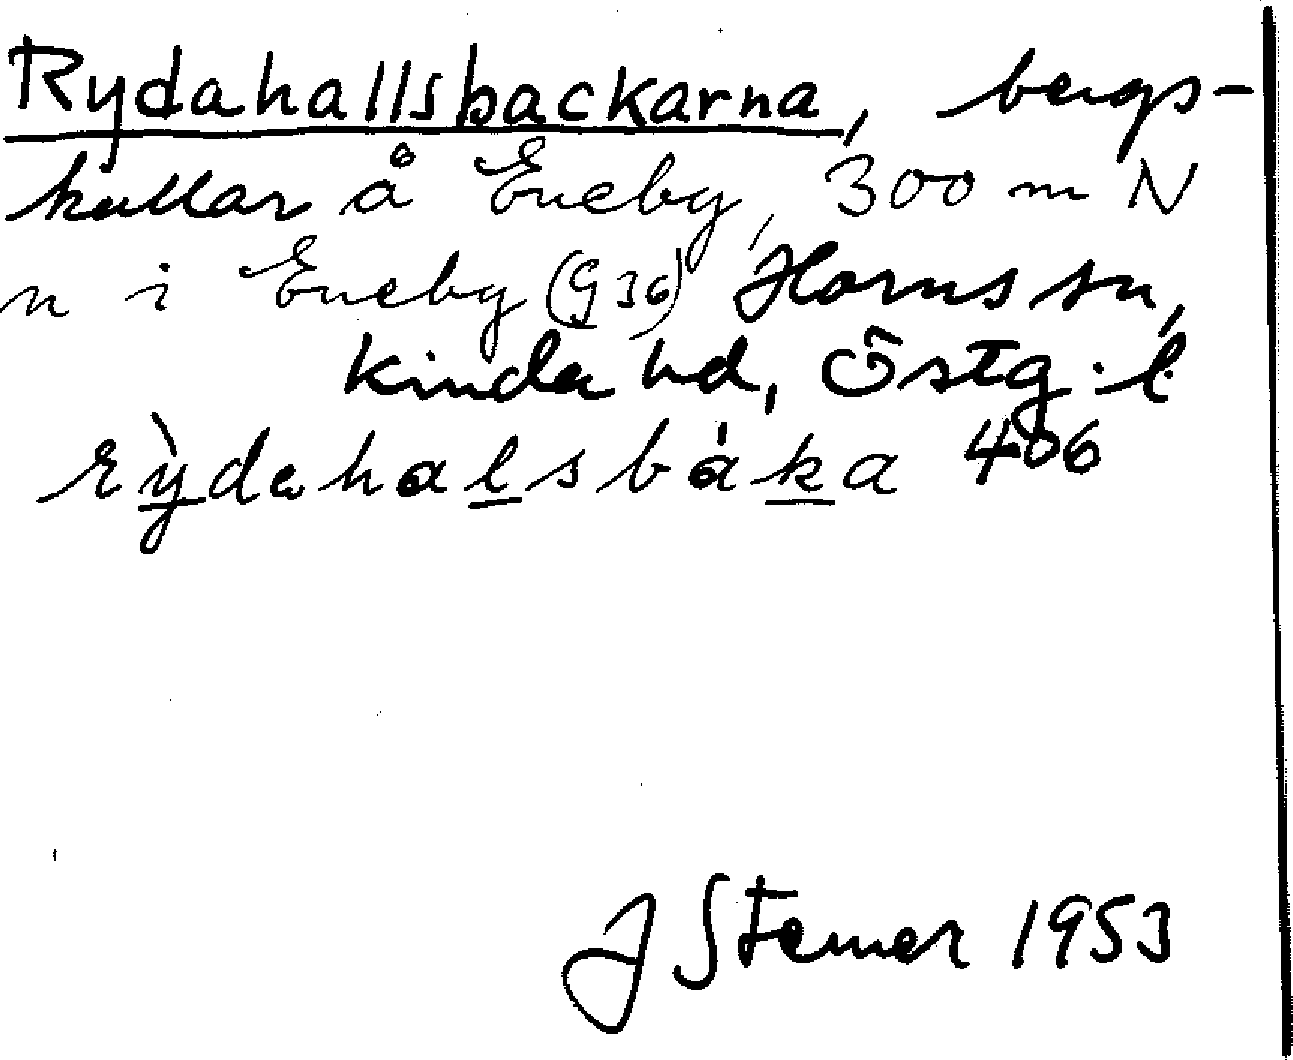 Rydahallsbackarna, bergs-
kullar å Eneby, 300 m N
n i Eneby (G 36) Horns sn,
Kinda hd, Östg. l.
rỳdahalsbáka 406
J Sterner 1953